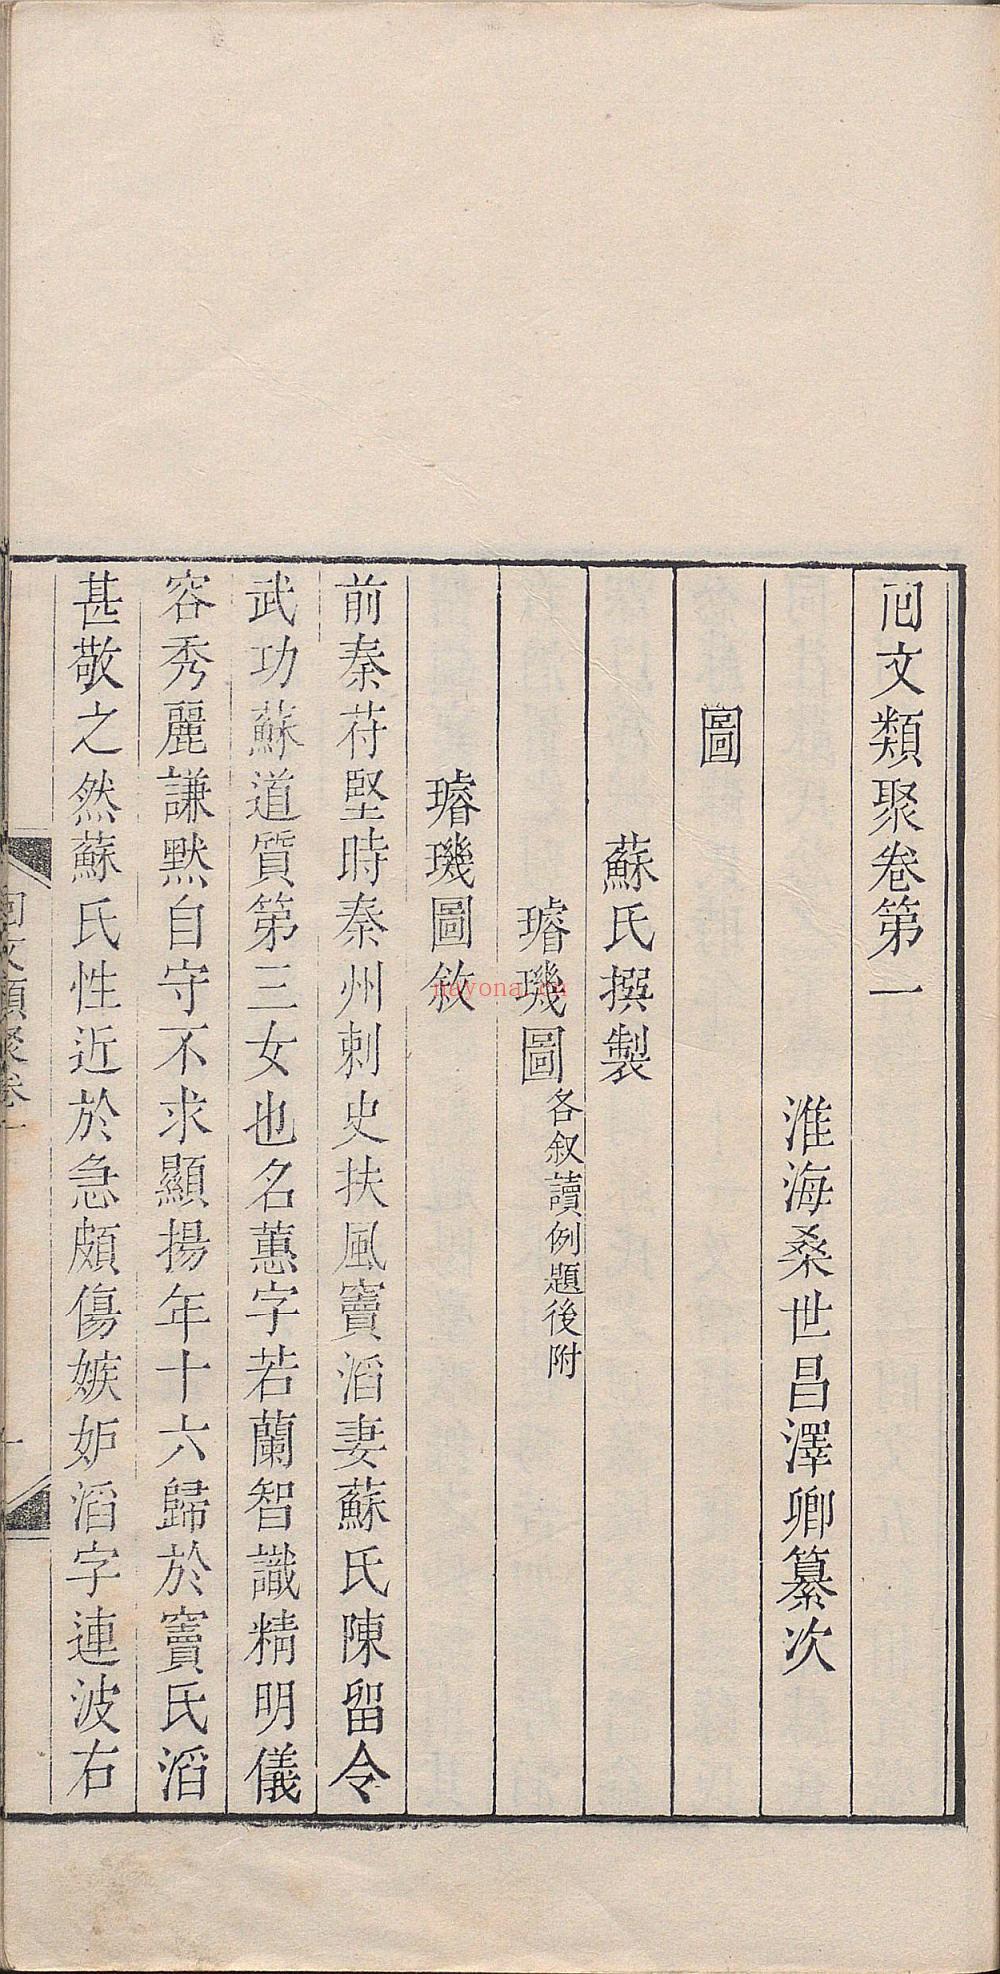 囘文類聚卷第一
淮海桑世昌澤卿纂次
圖
蘇氏撰製
璿璣圖各叙讀例題後附
璿璣圖敘
前秦苻堅時秦州刺史扶風竇滔妻蘇氏陳留令
武功蘇道質第三女也名蕙字若蘭智識精明儀
容秀麗謙默自守不求顯揚年十六歸於竇氏滔
甚敬之然蘇氏性近於急頗傷嫉妒滔字連波右
回文類聚卷一
一
nayona.cn